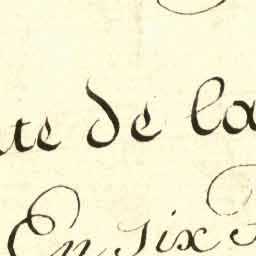 te de la
En six